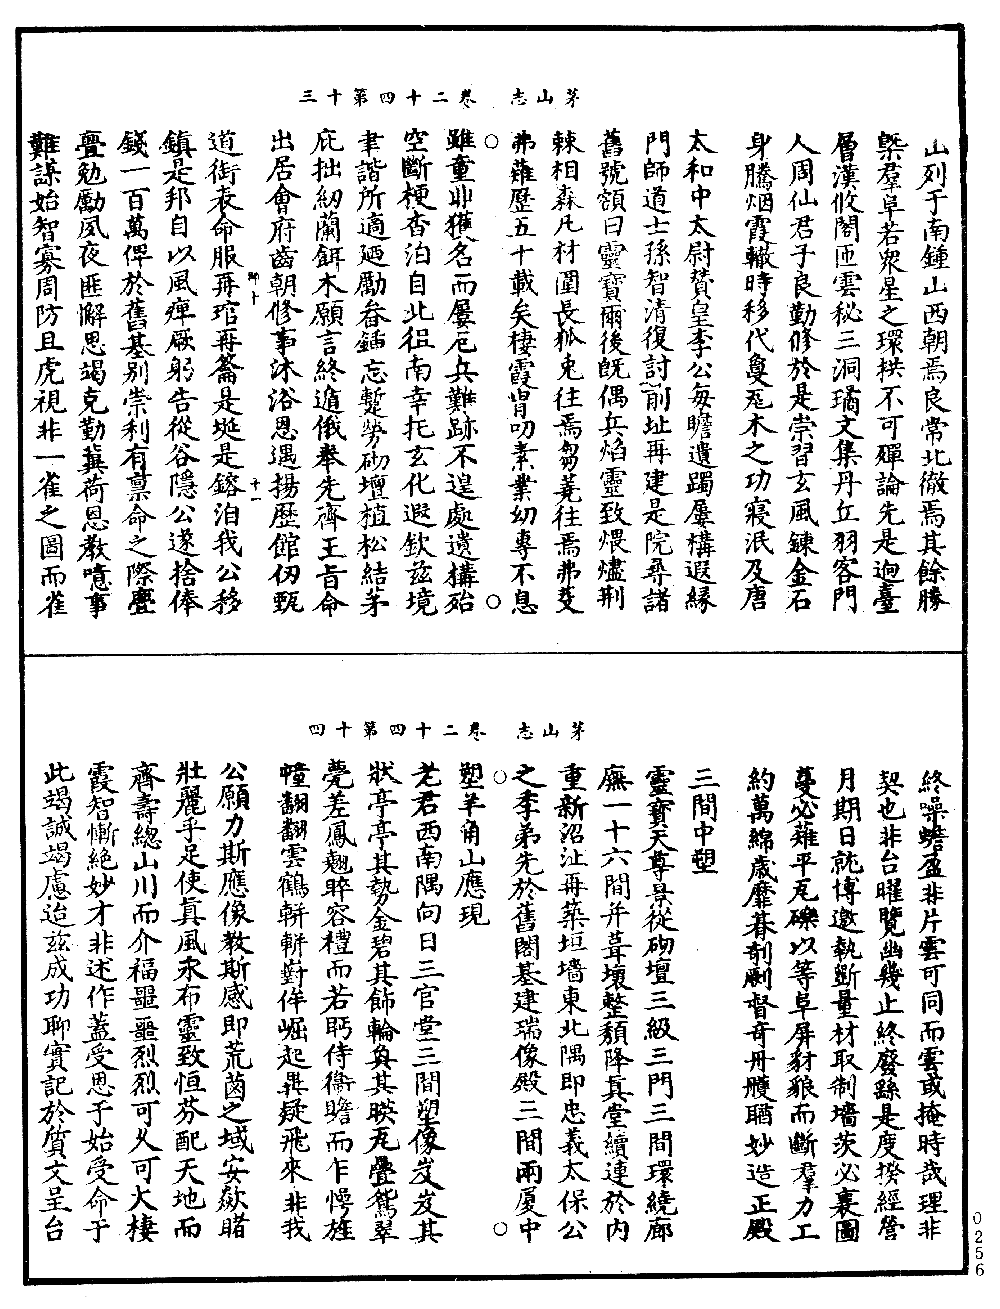 茅山志　卷二十四第十三
山列于南鍾山西朝焉良常北徹焉其餘勝
槩羣阜若眾星之環拱不可殫論先是迥臺
層漢攸閣匝雲秘三洞璚文集丹丘羽客門
人周仙君子良勤修於是崇習玄風鍊金石
身騰烟霞轍時移代敻瓦木之功寢泯及唐
太和中太尉贊皇李公每瞻遺躅屢構遐緣
門師道士孫智清復討前址再建是院尋諸
舊號額曰靈寶爾後既偶兵焰靈致煨燼荊
棘相森凡材圍長狐兎往焉芻蕘往焉弗芟
弗薙歷五十載矣棲霞胄叨素業幼專不息
雖童丱獲名而屢厄兵難跡不遑處遺搆殆
空斷梗杳泊自北徂南幸托玄化遐欽兹境
聿諧所適廼勵畚鍤忘蹔勞砌壇植松結茅
庇拙紉蘭餌朮願言終遁俄奉先齊王旨命
出居會府齒朝修事沐浴恩遇揚歷館伃甄
道街表命服再琯再籥是埏是鎔洎我公移
鎮是邦自以風痺厥躬告從谷隱公遂捨俸
錢一百萬俾於舊基别崇利有禀命之際亹
亹勉勵夙夜匪懈思竭克勤冀荷恩敎噫事
難謀始智寡周防且虎視非一雀之圖而雀
卿十　十一
茅山志　卷二十四第十四
終噪蟾盈非片雲可同而雲或掩時哉理非
契也非台曜覽幽幾止終廢繇是度揆經營
月期日就博邀執斲量材取制墻茨必裹圖
蔓必薙平瓦礫以等阜屏豺狼而斷羣力工
約萬綿歲靡朞剞劂督奇丹雘瞄妙造正殿
三間中塑
靈寶天尊景從砌壇三級三門三間環繞廊
廡一十六間并葺壞整頽降眞堂續連於内
重新沼沚再築垣墻東北隅即忠義太保公
之季弟先於舊閣基建瑞像殿三間兩厦中
塑羊角山應現
老君西南隅向日三官堂三間塑像岌岌其
狀亭亭其勢金碧其飾輪奐其暎瓦疊鴛翠
甍差鳳翹睟容禮而若眄侍衞瞻而乍愕旌
幢翻翻雲鶴軿軿對侔崛起異疑飛來非我
公願力斯應像敎斯感即荒茵之域安歘睹
壯麗乎足使眞風永布靈致恒芬配天地而
齊壽總山川而介福噩噩烈烈可久可大棲
霞智慚絶妙才非述作蓋受恩于始受命于
此竭誠竭慮迨兹成功聊實記於質文呈台
0256